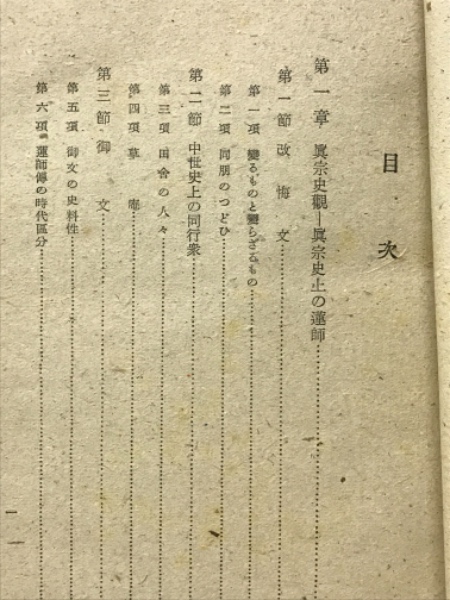 目次
第一章 眞宗史觀―眞宗史上の蓮師
第一節 改悔文
第一項 變るものと變らざるもの
第二項 同朋のつどひ
第二節 中世史上の同行衆
第三項 田舍の人々
第四項 草庵
第三節 御文
第五項 御文の史料性
第六項 蓮師傳の時代區分